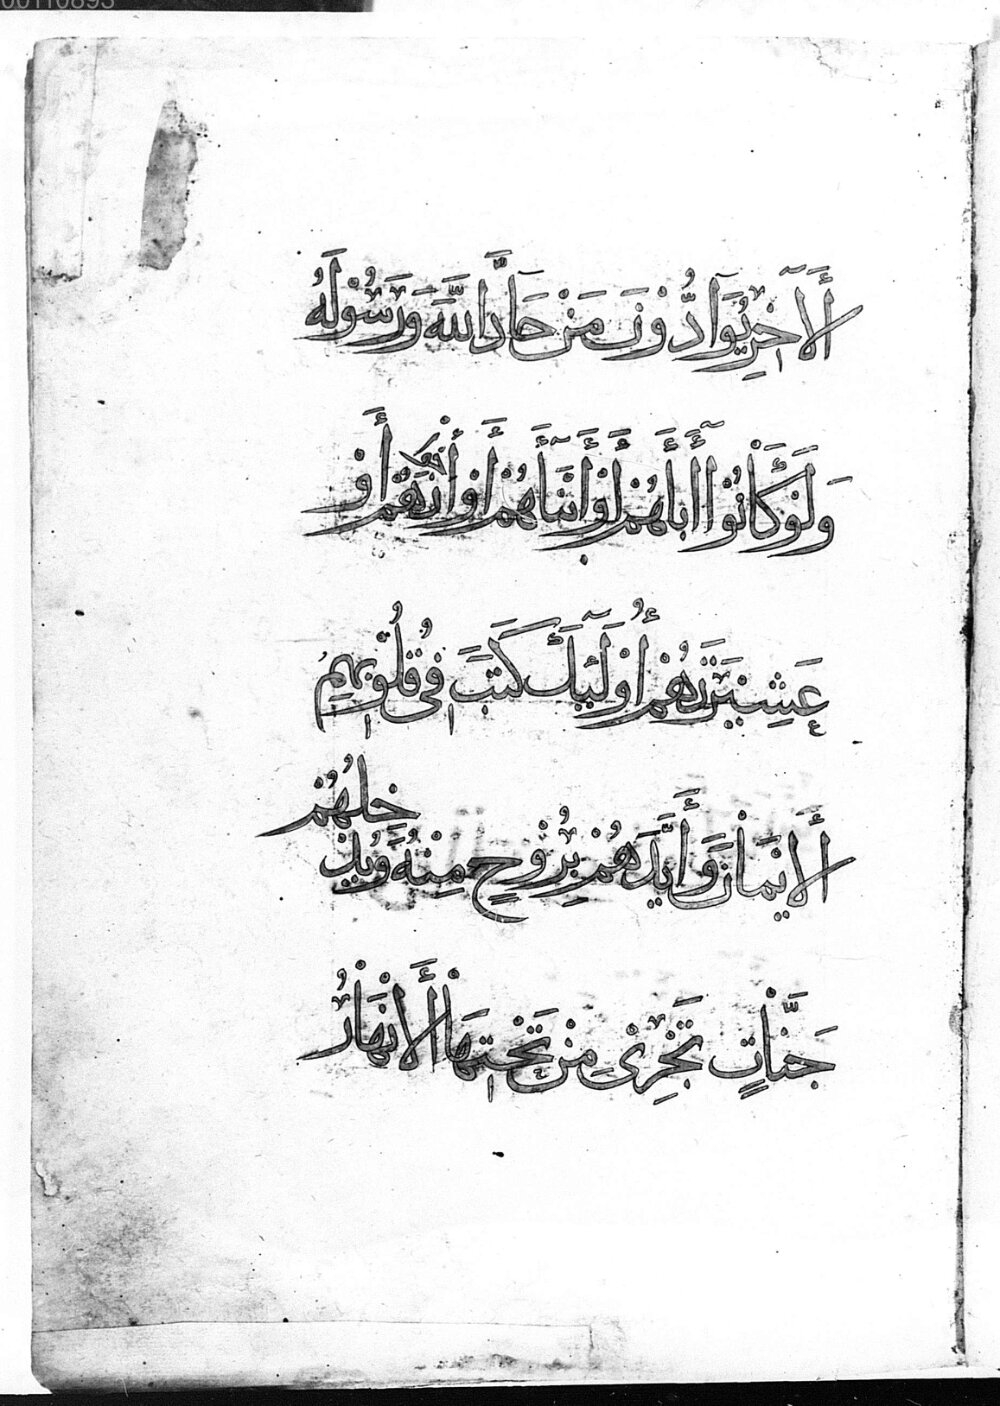 00110893
ٱلْأَٓخِرِ يُوَآدُّونَ مَنْ حَآدَّ ٱللَّهَ وَرَسُولَهُ
وَلَوْ كَانُوٓا۟ أَبَآءَهُمْ أَوْ أَبْنَآءَهُمْ أَوْ إِخْوَٰنَهُمْ أَوْ
عَشِيرَتَهُمْ أُو۟لَٰٓئِكَ كَتَبَ فِى قُلُوبِهِمُ
ٱلْإِيمَانَ وَأَيَّدَهُمْ بِرُوحٍ مِنْهُ وَيُدْ
خِلُهُمْ
جَنَّاتٍ تَجْرِى مِنْ تَحْتِهَا ٱلْأَنْهَارُ